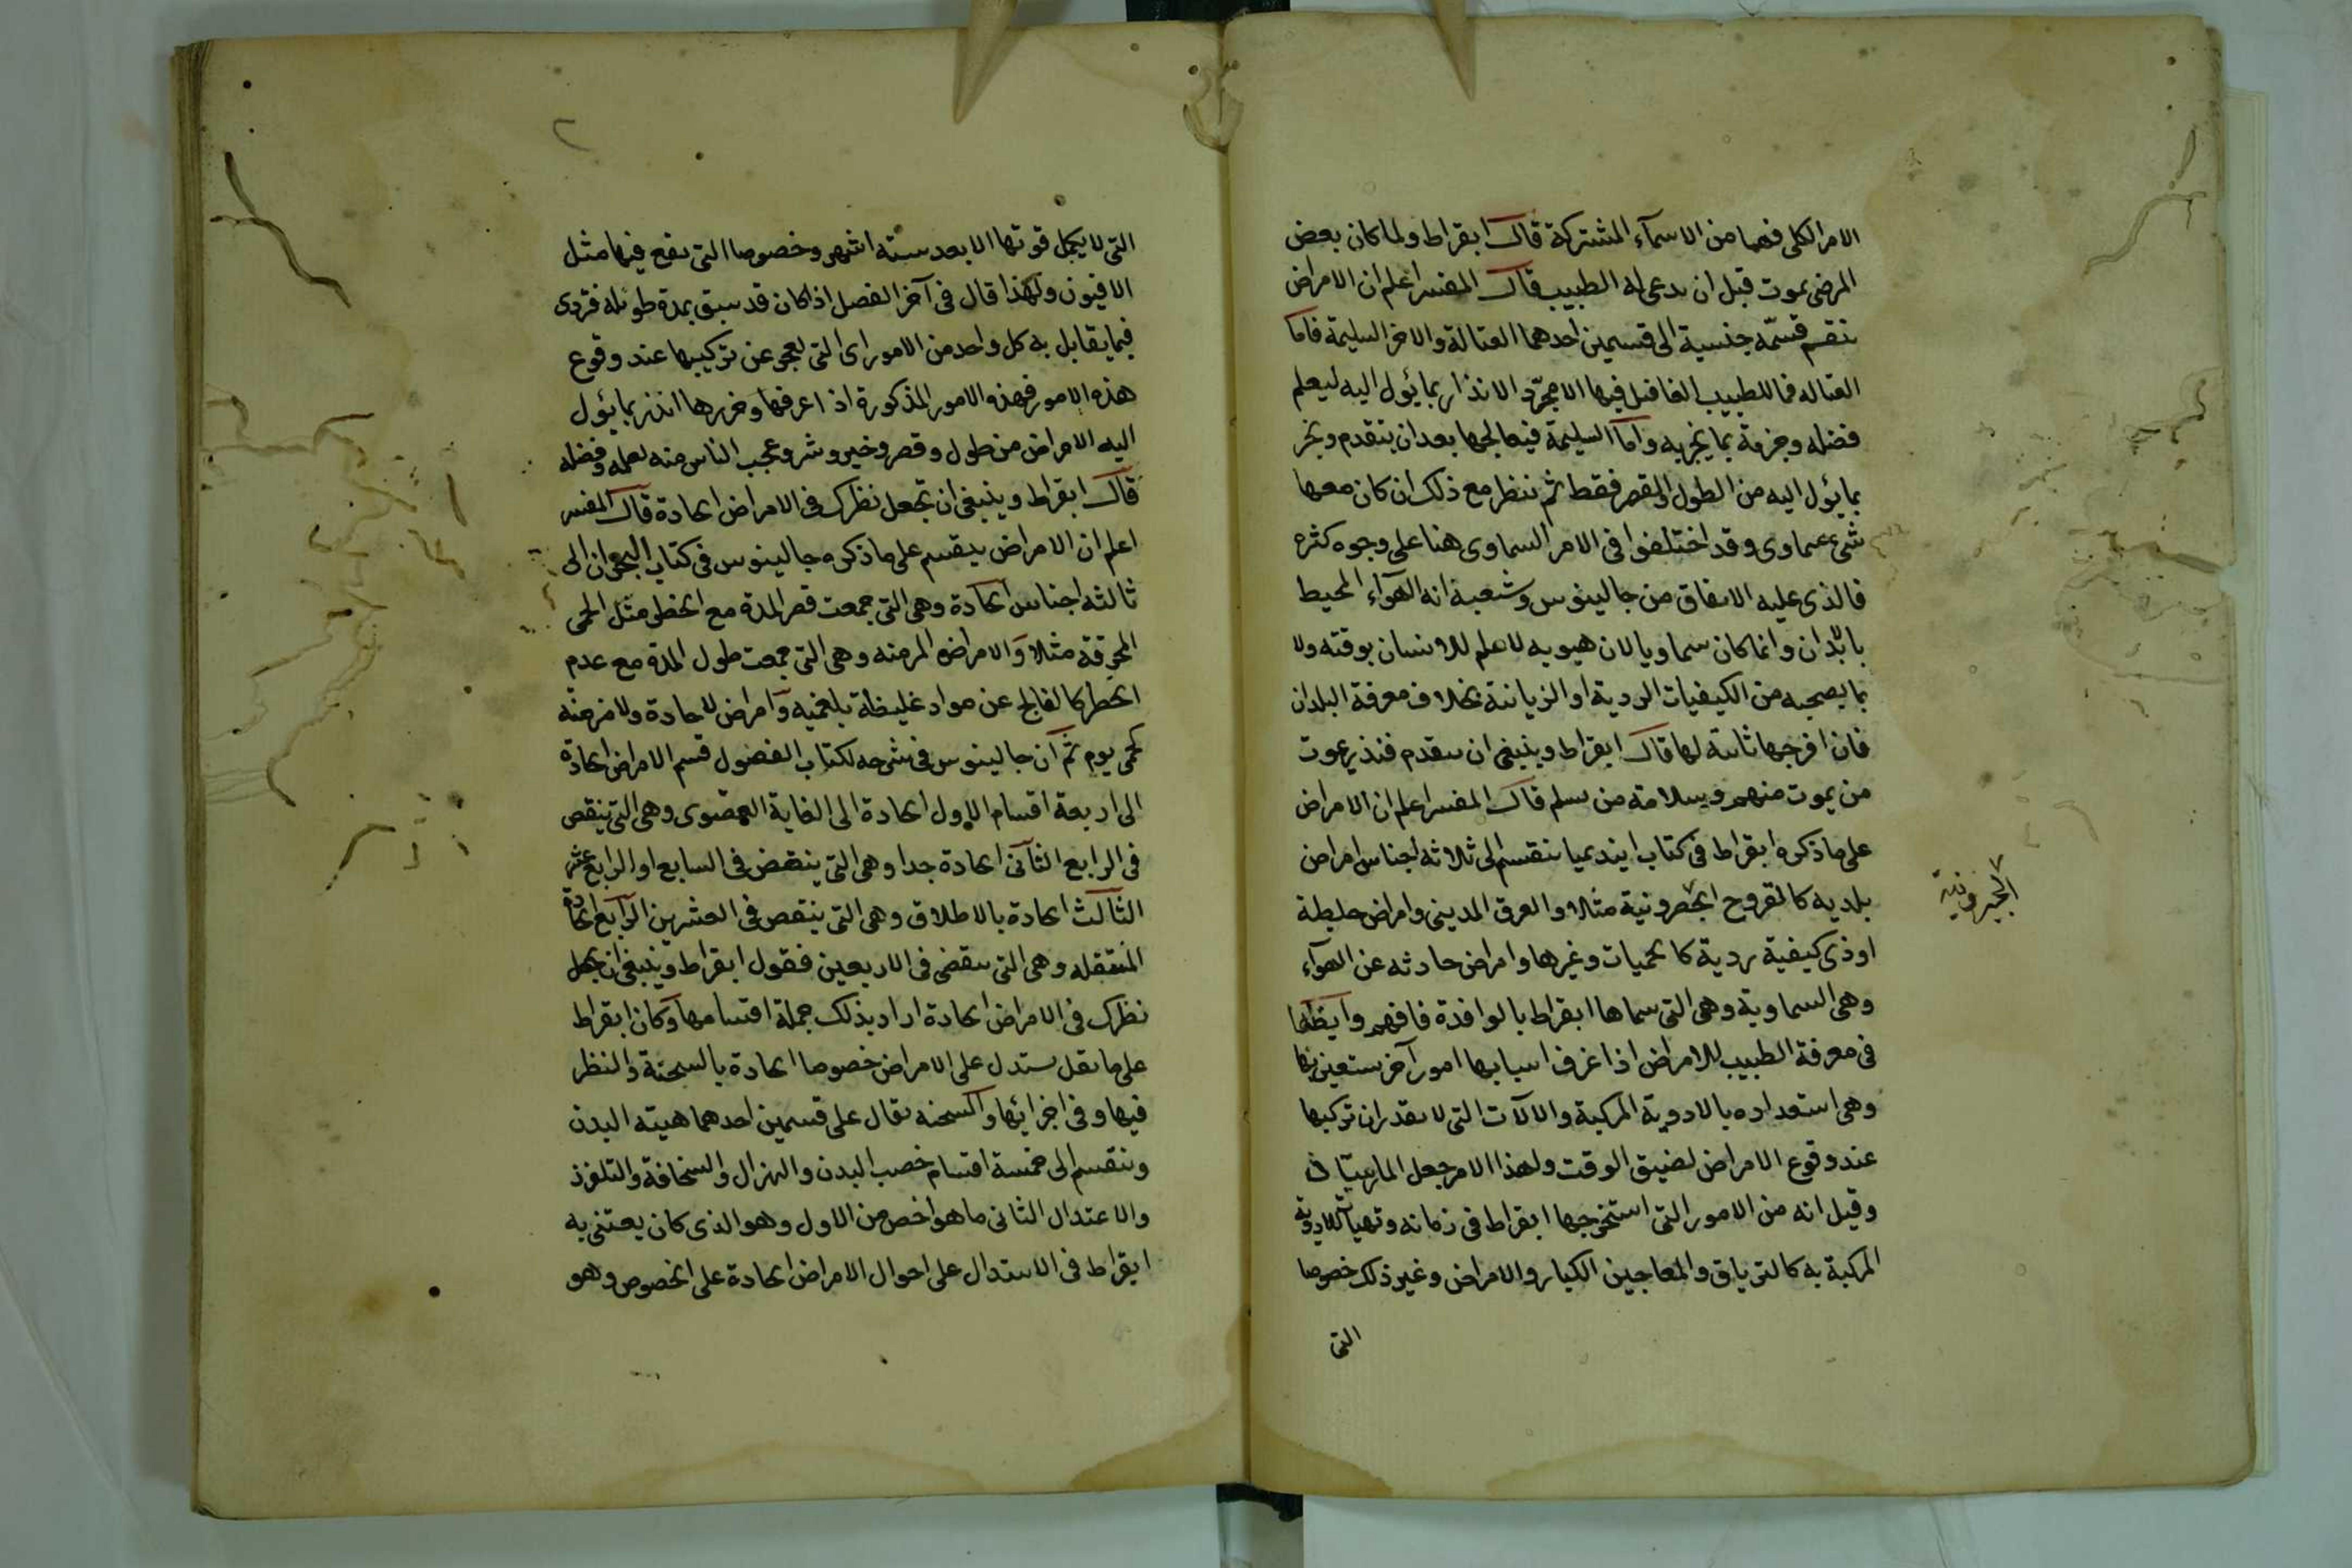 الامر الكلى فهما من الاسمآء المشتركة قال ابقراط ولما كان بعض
المرضى يموت قبل ان يدعى له الطبيب قال المفسر اعلم ان الامراض
تنقسم قسمّه جنسية الى قسمين احدهما القتالة والاخر السليمة فاما
القتاله فما للطبيب الفاضل فيها الا مجرّد الانذار بما يئول اليه ليعلم
فضله وجزمة بما يخبر به واما السليمة فيعالجها بعد ان يتقدم ويخبر
بما يئول اليه من الطول والقصر فقط ثم ننظر مع ذلك ان كان معها
شىء سماوى وقد اختلفوا فى الامر السماوى هنا على وجوه كثره
فالذى عليه الاتفاق من جالينوس وشعبة انه الهوآء المحيط
بالابدان وانما كان سماويا لان هبوبه لا علم للانسان بوقته ولا
بما يصحبه من الكيفيات الردية او الزيانة بخلاف معرفة البلدان
فان امزجها ثابتة لها قال ابقراط وينبغى ان يتقدم فنذر بموت
من يموت منهم وسلامة من يسلم قال المفسر اعلم ان الامراض
على ما ذكره ابقراط فى كتاب ابنديميا تنقسم الى ثلاثه اجناس امراض
بلديه كالقروح مثلا والعرق المدينى وامراض خليطة
او ذى كيفية ردية كالحميات وغيرها وامراض حادثه عن الهوآء
وهى السماوية وهى التى سماها ابقراط بالوافدة فافهم وايظا
فى معرفة الطبيب للامراض اذا عرف اسبابها امور آخر يستعين بها
وهى استعداده بالادوية المركبة والالآت التى لا يقدر ان تركبها
عند وقوع الامراض لضيق الوقت ولهذا الامر جعل المارستان
وقيل انه من الامور التى استخرجها ابقراط فى زمانه وتهيأت الادوية
المركبة به كالترياق والمعاجين الكبار والامراض وغير ذلك خصوصا
التى
٢
التى لا يكمل قوتها الا بعد ستة اشهر وخصوصا التى يقع فيها مثل
الافيون ولهذا قال فى آخر الفصل اذا كان قد سبق بمدة طويله فتروى
فيما يقابل به كل واحد من الامور اى التى يعجز عن تركيبها عند وقوع
هذه الامور فهذه الامور المذكورة اذا عرفها وحررها انذر بما يئول
اليه الامراض من طول وقصر وخير وشر وعجب الناس منه لعمله وفضله
قال ابقراط وينبغى ان تجعل نظرك فى الامراض الحادة قال المفسر
اعلم ان الامراض ينقسم على ما ذكره جالينوس فى كتاب البحران الى
ثالثه اجناس الحادة وهى التى جمعت قصر المدة مع الخطر مثل الحمى
المحرقة مثلا والامراض المزمنه وهى التى جمعت طول المدة مع عدم
الخطر كالفالج عن مواد غليظة بلغميه وامراض لا حادة ولا مزمنة
كحمى يوم ثم ان جالينوس فى شرحه لكتاب الفصول قسم الامراض الحادة
الى اربعة اقسام الاول الحادة الى الغاية القصوى وهى التى ينقص
فى الرابع الثانى الحادة جدا وهى التى ينقضى فى السابع او الرابع عشر
الثالث الحادة بالاطلاق وهى التى ينقص فى العشرين الرابع الحادة
المنتقله وهى التى ينقضى فى الاربعين فقول ابقراط وينبغى ان تجعل
نظرك فى الامراض الحادة اراد بذلك جملة اقسامها وكان ابقراط
على ما نقل يستدل على الامراض خصوصا الحادة بالسحنة والنظر
فيها وفى اجزائها والسحنه يقال على قسمين احدهما هيئه البدن
وينقسم الى خمسة اقسام خصب البدن والهزال والسخافة والتلزز
والاعتدال الثانى ما هو اخص من الاول وهو الذى كان يعتنى به
ابقراط فى الاستدال على احوال الامراض الحادة على الخصوص وهو